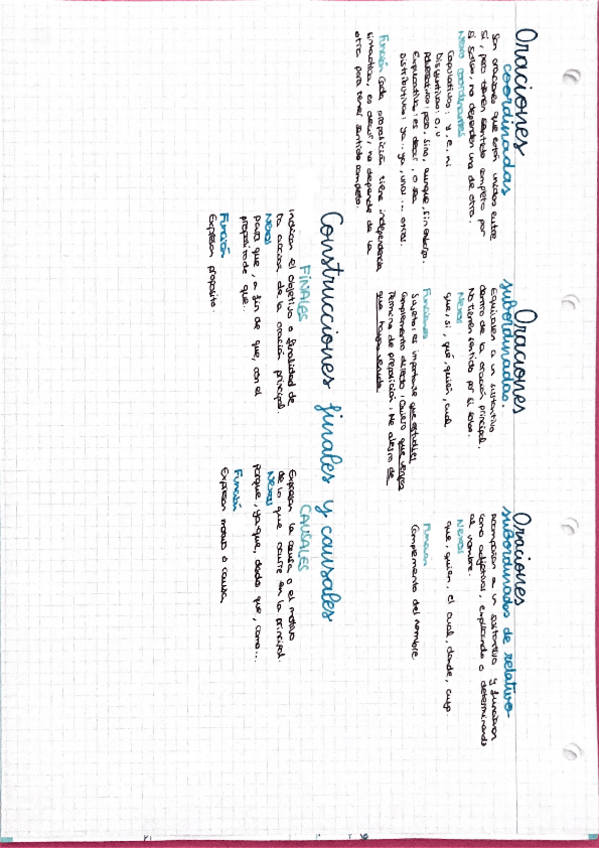 Oraciones
coordinadas
Son oraciones que están unidas entre
sí, pero tienen sentido completo por
sí solas, no dependen una de otra.
Nexos coordinantes
Copulativos: y, e, ni
Disyuntivos: o, u
Adversativos: pero, sino, aunque, sin embargo.
Explicativos: es decir, o sea
Distributivos: ya.. ya, unos ... otros.
Función Cada proposición tiene independencia
sintáctica, es decir, no depende de la
otra para tener sentido completo.
Oraciones
subordinadas.
Equivalen a un sustantivo
dentro de la oración principal.
No tienen sentido por sí solas.
Nexos
que, si, qué, quién, cual
Funciones
Sujeto: es importante que estudies
Complemento directo: Quiero que vengas
Término de preposición: Me alegro de
que hayas venido
Oraciones
subordinadas de relativo
Acompañan a un sustantivo y funcionan
como adjetivos, explicando o determinando
al nombre.
Nexos
que, quien, el cual, donde, cuyo
Función
Complemento del nombre
Construcciones finales y causales
FINALES
Indican el objetivo o finalidad de
la acción de la oración principal.
Nexos
para que, a fin de que, con el
propósito de que.
Función
Expresan propósito.
CAUSALES
Expresan la causa o el motivo
de lo que ocurre en la principal.
Nexos
porque, ya que, dado que, como...
Función
Expresan motivo o causa.